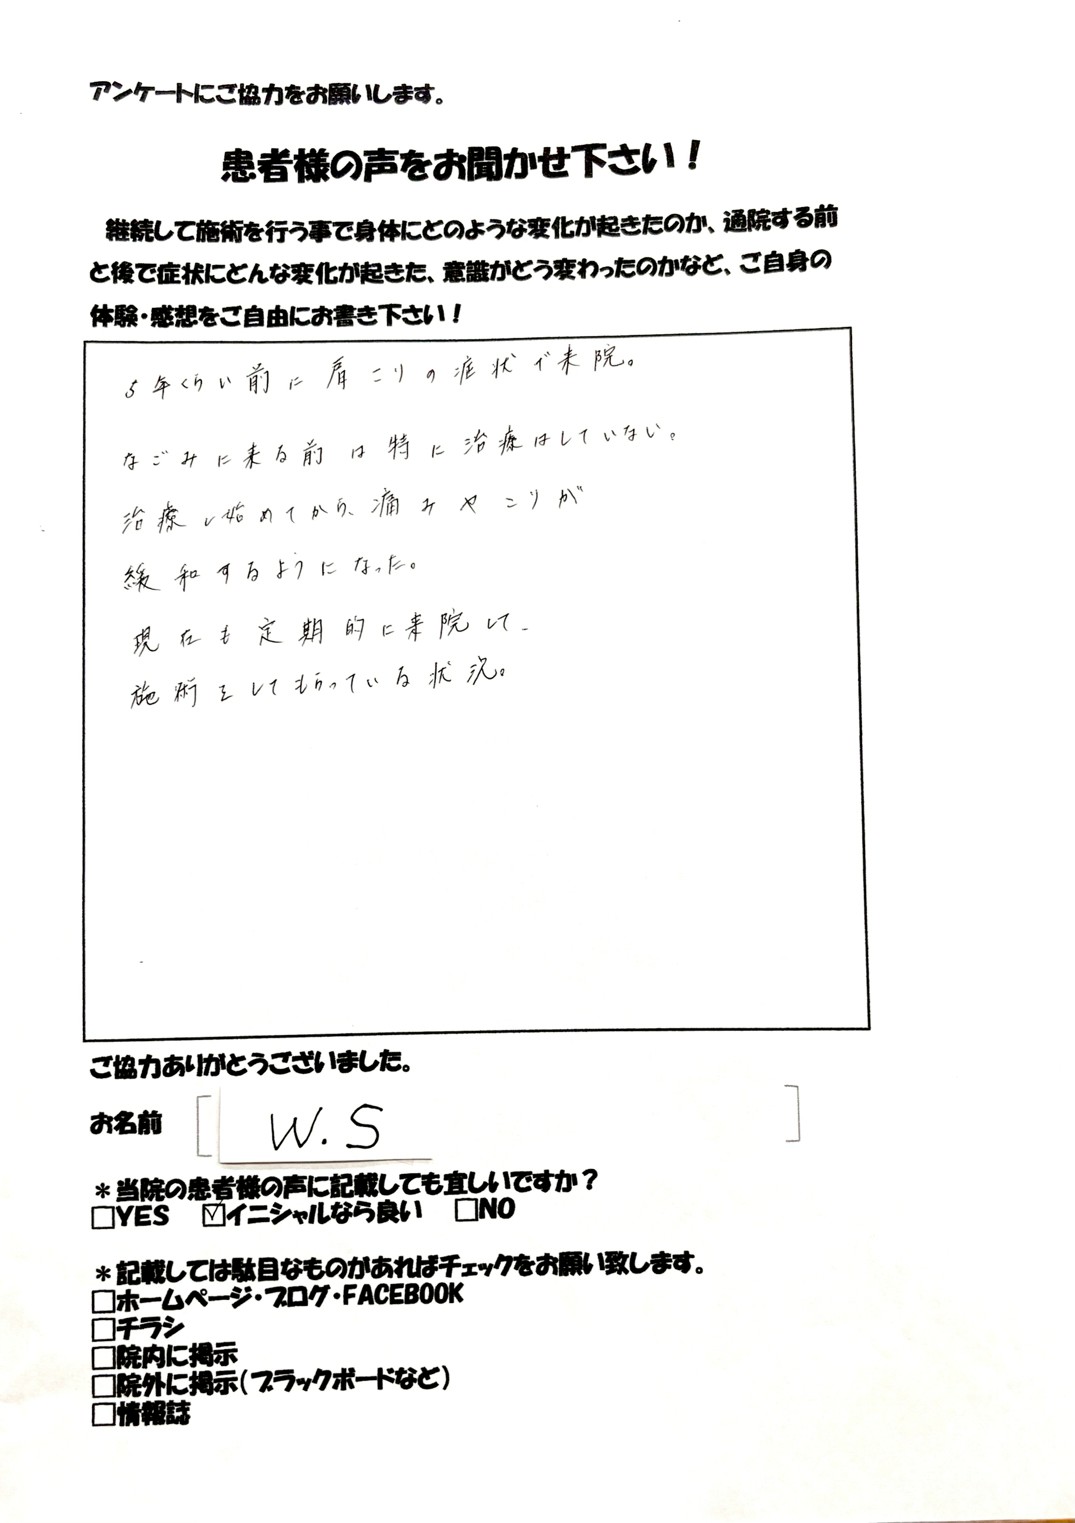 アンケートにご協力をお願いします。
患者様の声をお聞かせ下さい！
継続して施術を行う事で身体にどのような変化が起きたのか、通院する前
と後で症状にどんな変化が起きた、意識がどう変わったのかなど、ご自身の
体験・感想をご自由にお書き下さい！
5年くらい前に肩こりの症状で来院。
なごみに来る前は特に治療はしていない。
治療し始めてから、痛みやこりが
緩和するようになった。
現在も定期的に来院して、
施術をしてもらっている状況。
ご協力ありがとうございました。
お名前 W.S
＊当院の患者様の声に記載しても宜しいですか？
□YES ☑イニシャルなら良い □NO
＊記載しては駄目なものがあればチェックをお願い致します。
□ホームページ・ブログ・FACEBOOK
□チラシ
□院内に掲示
□院外に掲示(ブラックボードなど)
□情報誌